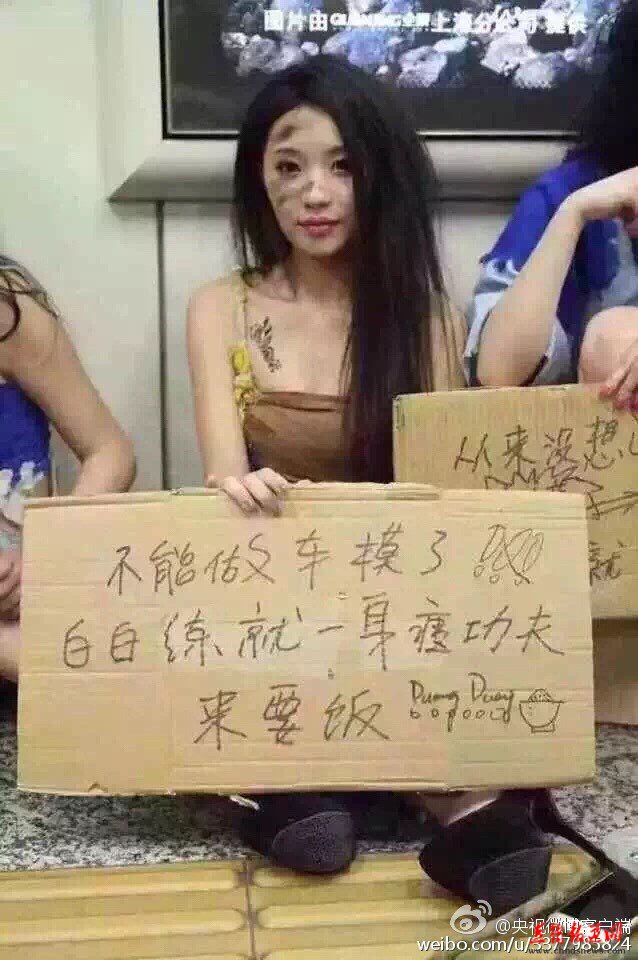 图片由 上海分公司 提供
从来没想
就
不能做车模了
白白练就一身瘪功夫
来要饭 Duang Duang
@央视微博客户端
weibo.com/u/5577985824